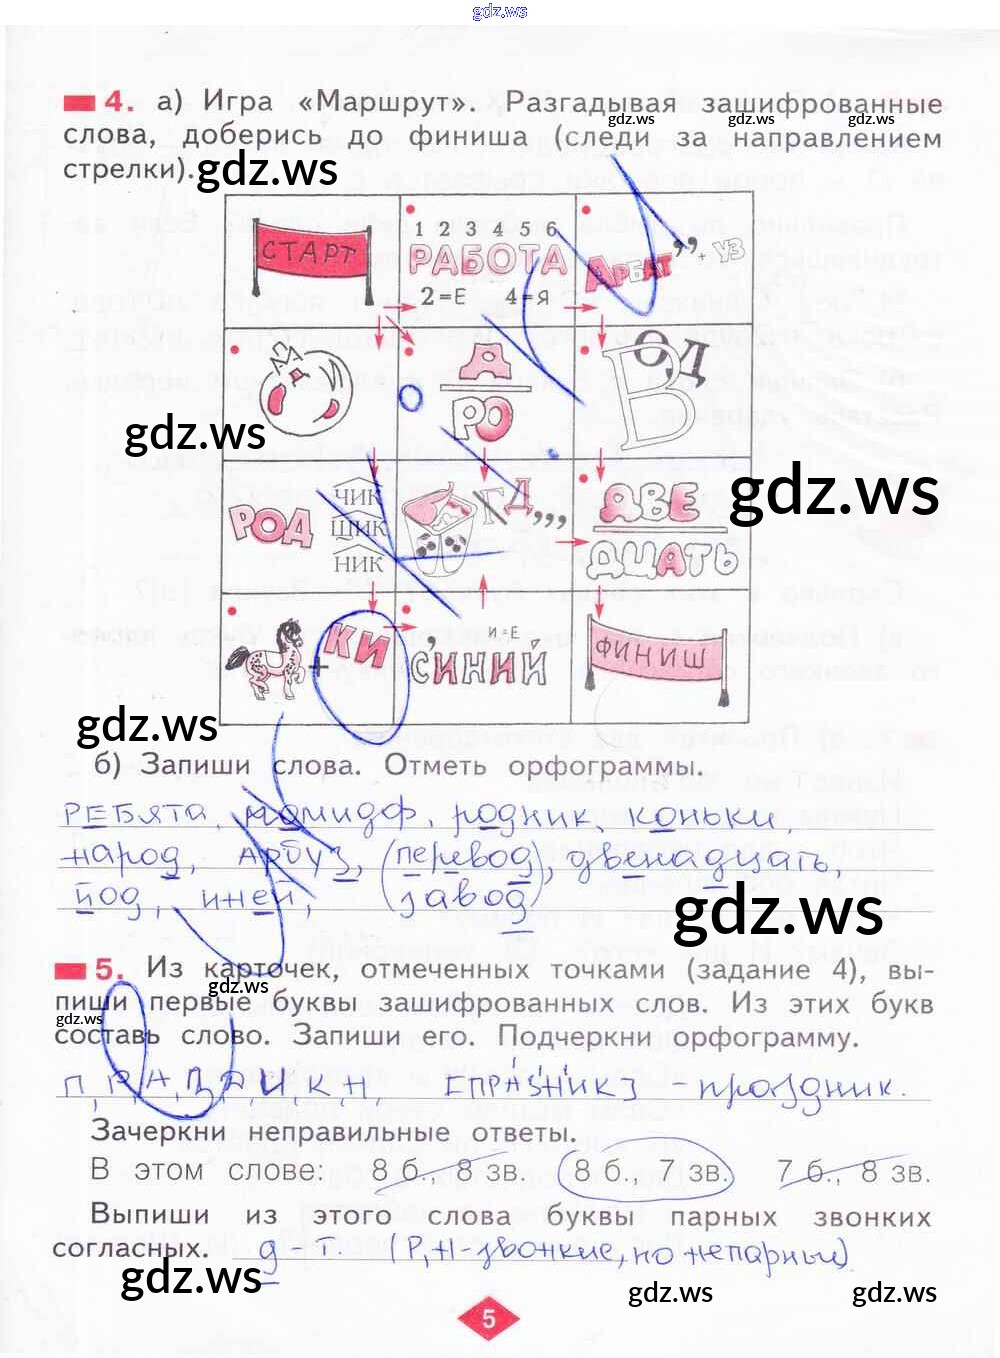 gdz.ws
4. а) Игра «Маршрут». Разгадывая зашифрованные
gdz.ws gdz.ws gdz.ws
слова, доберись до финиша (следи за направлением
стрелки).
gdz.ws
СТАРТ
1 2 3 4 5 6
РАБОТА
2=Е 4=Я
АРБАТ ,, + УЗ
А
РО
В ОД
gdz.ws
РОД
ЧИК
ЩИК
НИК
Г Д,,,,
ДВЕ
ДЦАТЬ
gdz.ws
+ КИ
И=Е
СИНИЙ
ФИНИШ
gdz.ws
б) Запиши слова. Отметь орфограммы.
РЕБЯТА, помидор, родник, коньки,
народ, АРБУЗ, (перевод), двенадцать,
йод, иней, (завод)
gdz.ws
5. Из карточек, отмеченных точками (задание 4), вы-
gdz.ws gdz.ws
пиши первые буквы зашифрованных слов. Из этих букв
gdz.ws
составь слово. Запиши его. Подчеркни орфограмму.
gdz.ws
- праздник.
Зачеркни неправильные ответы.
В этом слове: 8 б., 8 зв. 8 б., 7 зв. 7 б., 8 зв.
Выпиши из этого слова буквы парных звонких
согласных. д (Р, Н-звонкие, но непарные)
gdz.ws
gdz.ws gdz.ws
5